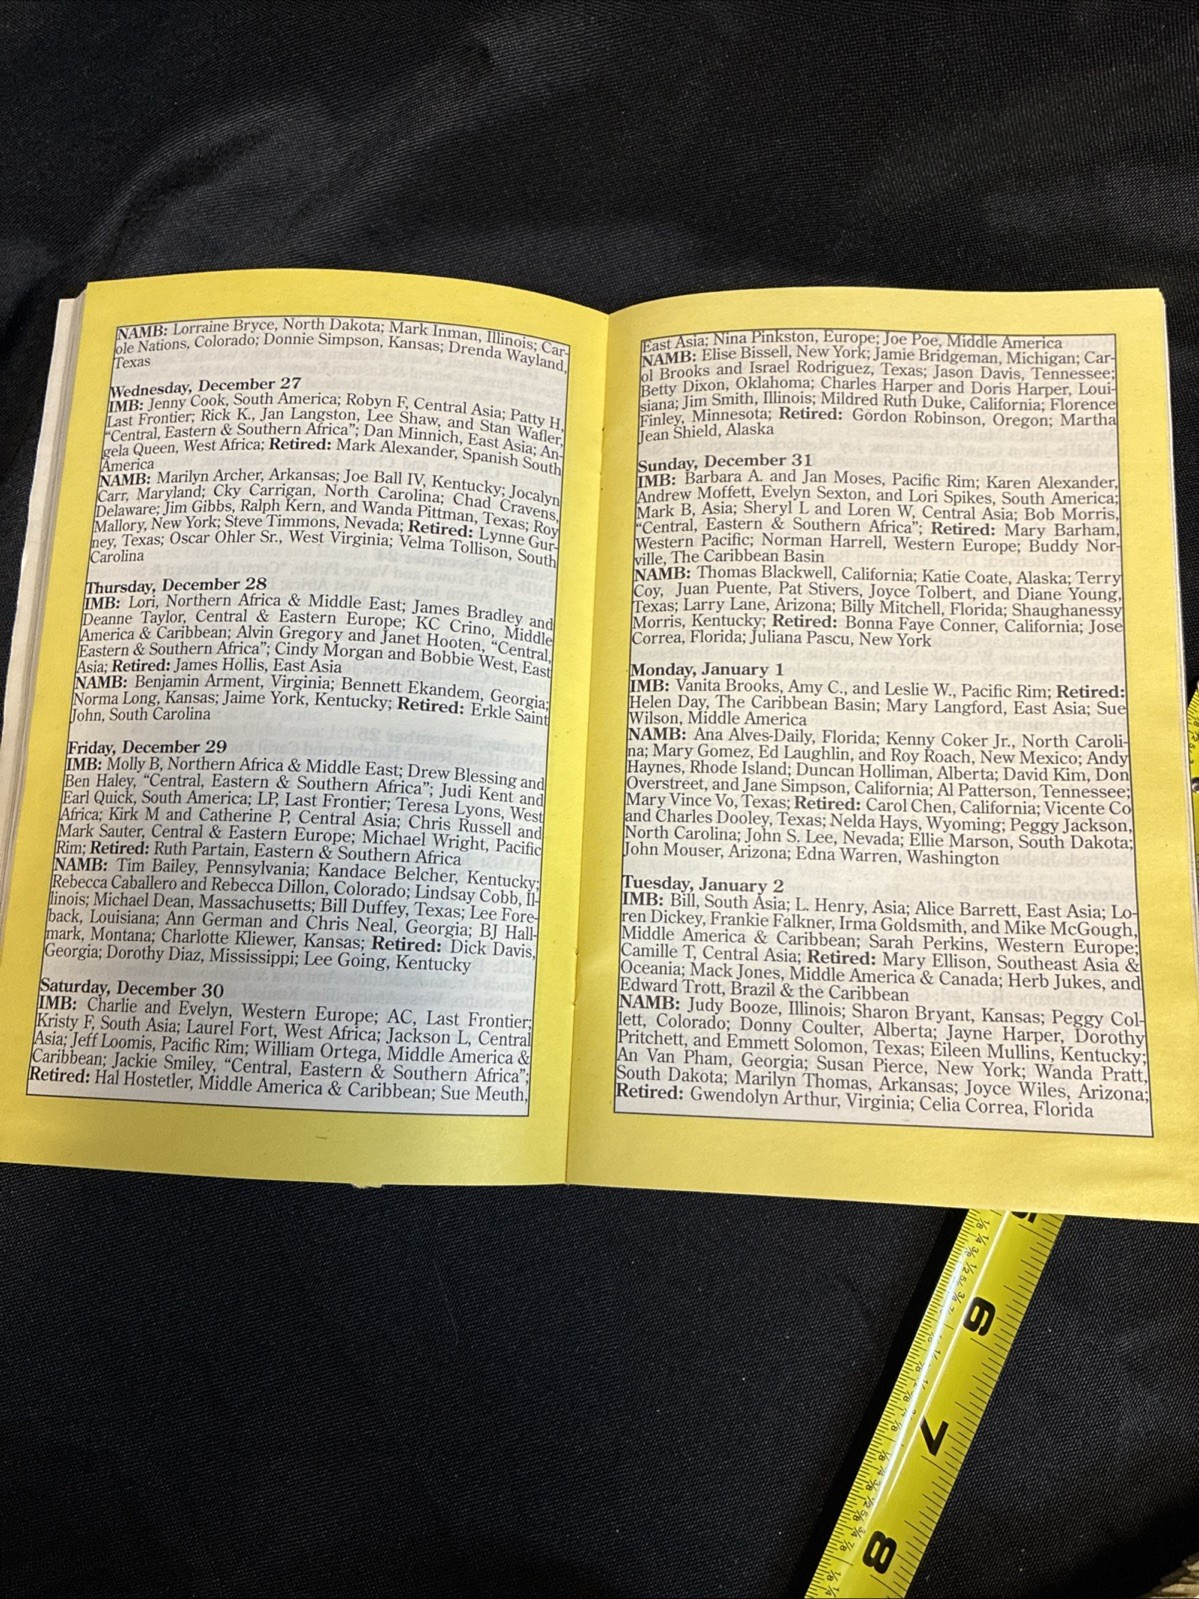 NAMB: Lorraine Bryce, North Dakota; Mark Inman, Illinois; Car-
ole Nations, Colorado; Donnie Simpson, Kansas; Drenda Wayland,
Texas
Wednesday, December 27
IMB: Jenny Cook, South America; Robyn F, Central Asia; Patty H,
Last Frontier; Rick K., Jan Langston, Lee Shaw, and Stan Wafler,
“Central, Eastern & Southern Africa”; Dan Minnich, East Asia; An-
gela Queen, West Africa; Retired: Mark Alexander, Spanish South
America
NAMB: Marilyn Archer, Arkansas; Joe Ball IV, Kentucky; Jocalyn
Carr, Maryland; Cky Carrigan, North Carolina; Chad Cravens,
Delaware; Jim Gibbs, Ralph Kern, and Wanda Pittman, Texas; Roy
Mallory, New York; Steve Timmons, Nevada; Retired: Lynne Gur-
ney, Texas; Oscar Ohler Sr., West Virginia; Velma Tollison, South
Carolina
Thursday, December 28
IMB: Lori, Northern Africa & Middle East; James Bradley and
Deanne Taylor, Central & Eastern Europe; KC Crino, Middle
America & Caribbean; Alvin Gregory and Janet Hooten, “Central,
Eastern & Southern Africa”; Cindy Morgan and Bobbie West, East
Asia; Retired: James Hollis, East Asia
NAMB: Benjamin Arment, Virginia; Bennett Ekandem, Georgia;
Norma Long, Kansas; Jaime York, Kentucky; Retired: Erkle Saint
John, South Carolina
Friday, December 29
IMB: Molly B, Northern Africa & Middle East; Drew Blessing and
Ben Haley, “Central, Eastern & Southern Africa”; Judi Kent and
Earl Quick, South America; LP, Last Frontier; Teresa Lyons, West
Africa; Kirk M and Catherine P, Central Asia; Chris Russell and
Mark Sauter, Central & Eastern Europe; Michael Wright, Pacific
Rim; Retired: Ruth Partain, Eastern & Southern Africa
NAMB: Tim Bailey, Pennsylvania; Kandace Belcher, Kentucky;
Rebecca Caballero and Rebecca Dillon, Colorado; Lindsay Cobb, Il-
linois; Michael Dean, Massachusetts; Bill Duffey, Texas; Lee Fore-
back, Louisiana; Ann German and Chris Neal, Georgia; BJ Hall-
mark, Montana; Charlotte Kliewer, Kansas; Retired: Dick Davis,
Georgia; Dorothy Diaz, Mississippi; Lee Going, Kentucky
Saturday, December 30
IMB: Charlie and Evelyn, Western Europe; AC, Last Frontier;
Kristy F, South Asia; Laurel Fort, West Africa; Jackson L, Central
Asia; Jeff Loomis, Pacific Rim; William Ortega, Middle America &
Caribbean; Jackie Smiley, “Central, Eastern & Southern Africa”;
Retired: Hal Hostetler, Middle America & Caribbean; Sue Meuth,
East Asia; Nina Pinkston, Europe; Joe Poe, Middle America
NAMB: Elise Bissell, New York; Jamie Bridgeman, Michigan; Car-
ol Brooks and Israel Rodriguez, Texas; Jason Davis, Tennessee;
Betty Dixon, Oklahoma; Charles Harper and Doris Harper, Loui-
siana; Jim Smith, Illinois; Mildred Ruth Duke, California; Florence
Finley, Minnesota; Retired: Gordon Robinson, Oregon; Martha
Jean Shield, Alaska
Sunday, December 31
IMB: Barbara A. and Jan Moses, Pacific Rim; Karen Alexander,
Andrew Moffett, Evelyn Sexton, and Lori Spikes, South America;
Mark B, Asia; Sheryl L and Loren W, Central Asia; Bob Morris,
“Central, Eastern & Southern Africa”; Retired: Mary Barham,
Western Pacific; Norman Harrell, Western Europe; Buddy Nor-
ville, The Caribbean Basin
NAMB: Thomas Blackwell, California; Katie Coate, Alaska; Terry
Coy, Juan Puente, Pat Stivers, Joyce Tolbert, and Diane Young,
Texas; Larry Lane, Arizona; Billy Mitchell, Florida; Shaughanessy
Morris, Kentucky; Retired: Bonna Faye Conner, California; Jose
Correa, Florida; Juliana Pascu, New York
Monday, January 1
IMB: Vanita Brooks, Amy C., and Leslie W., Pacific Rim; Retired:
Helen Day, The Caribbean Basin; Mary Langford, East Asia; Sue
Wilson, Middle America
NAMB: Ana Alves-Daily, Florida; Kenny Coker Jr., North Caroli-
na; Mary Gomez, Ed Laughlin, and Roy Roach, New Mexico; Andy
Haynes, Rhode Island; Duncan Holliman, Alberta; David Kim, Don
Overstreet, and Jane Simpson, California; Al Patterson, Tennessee;
Mary Vince Vo, Texas; Retired: Carol Chen, California; Vicente Co
and Charles Dooley, Texas; Nelda Hays, Wyoming; Peggy Jackson,
North Carolina; John S. Lee, Nevada; Ellie Marson, South Dakota;
John Mouser, Arizona; Edna Warren, Washington
Tuesday, January 2
IMB: Bill, South Asia; L. Henry, Asia; Alice Barrett, East Asia; Lo-
ren Dickey, Frankie Falkner, Irma Goldsmith, and Mike McGough,
Middle America & Caribbean; Sarah Perkins, Western Europe;
Camille T, Central Asia; Retired: Mary Ellison, Southeast Asia &
Oceania; Mack Jones, Middle America & Canada; Herb Jukes, and
Edward Trott, Brazil & the Caribbean
NAMB: Judy Booze, Illinois; Sharon Bryant, Kansas; Peggy Col-
lett, Colorado; Donny Coulter, Alberta; Jayne Harper, Dorothy
Pritchett, and Emmett Solomon, Texas; Eileen Mullins, Kentucky;
An Van Pham, Georgia; Susan Pierce, New York; Wanda Pratt,
South Dakota; Marilyn Thomas, Arkansas; Joyce Wiles, Arizona;
Retired: Gwendolyn Arthur, Virginia; Celia Correa, Florida
5
6
7
8